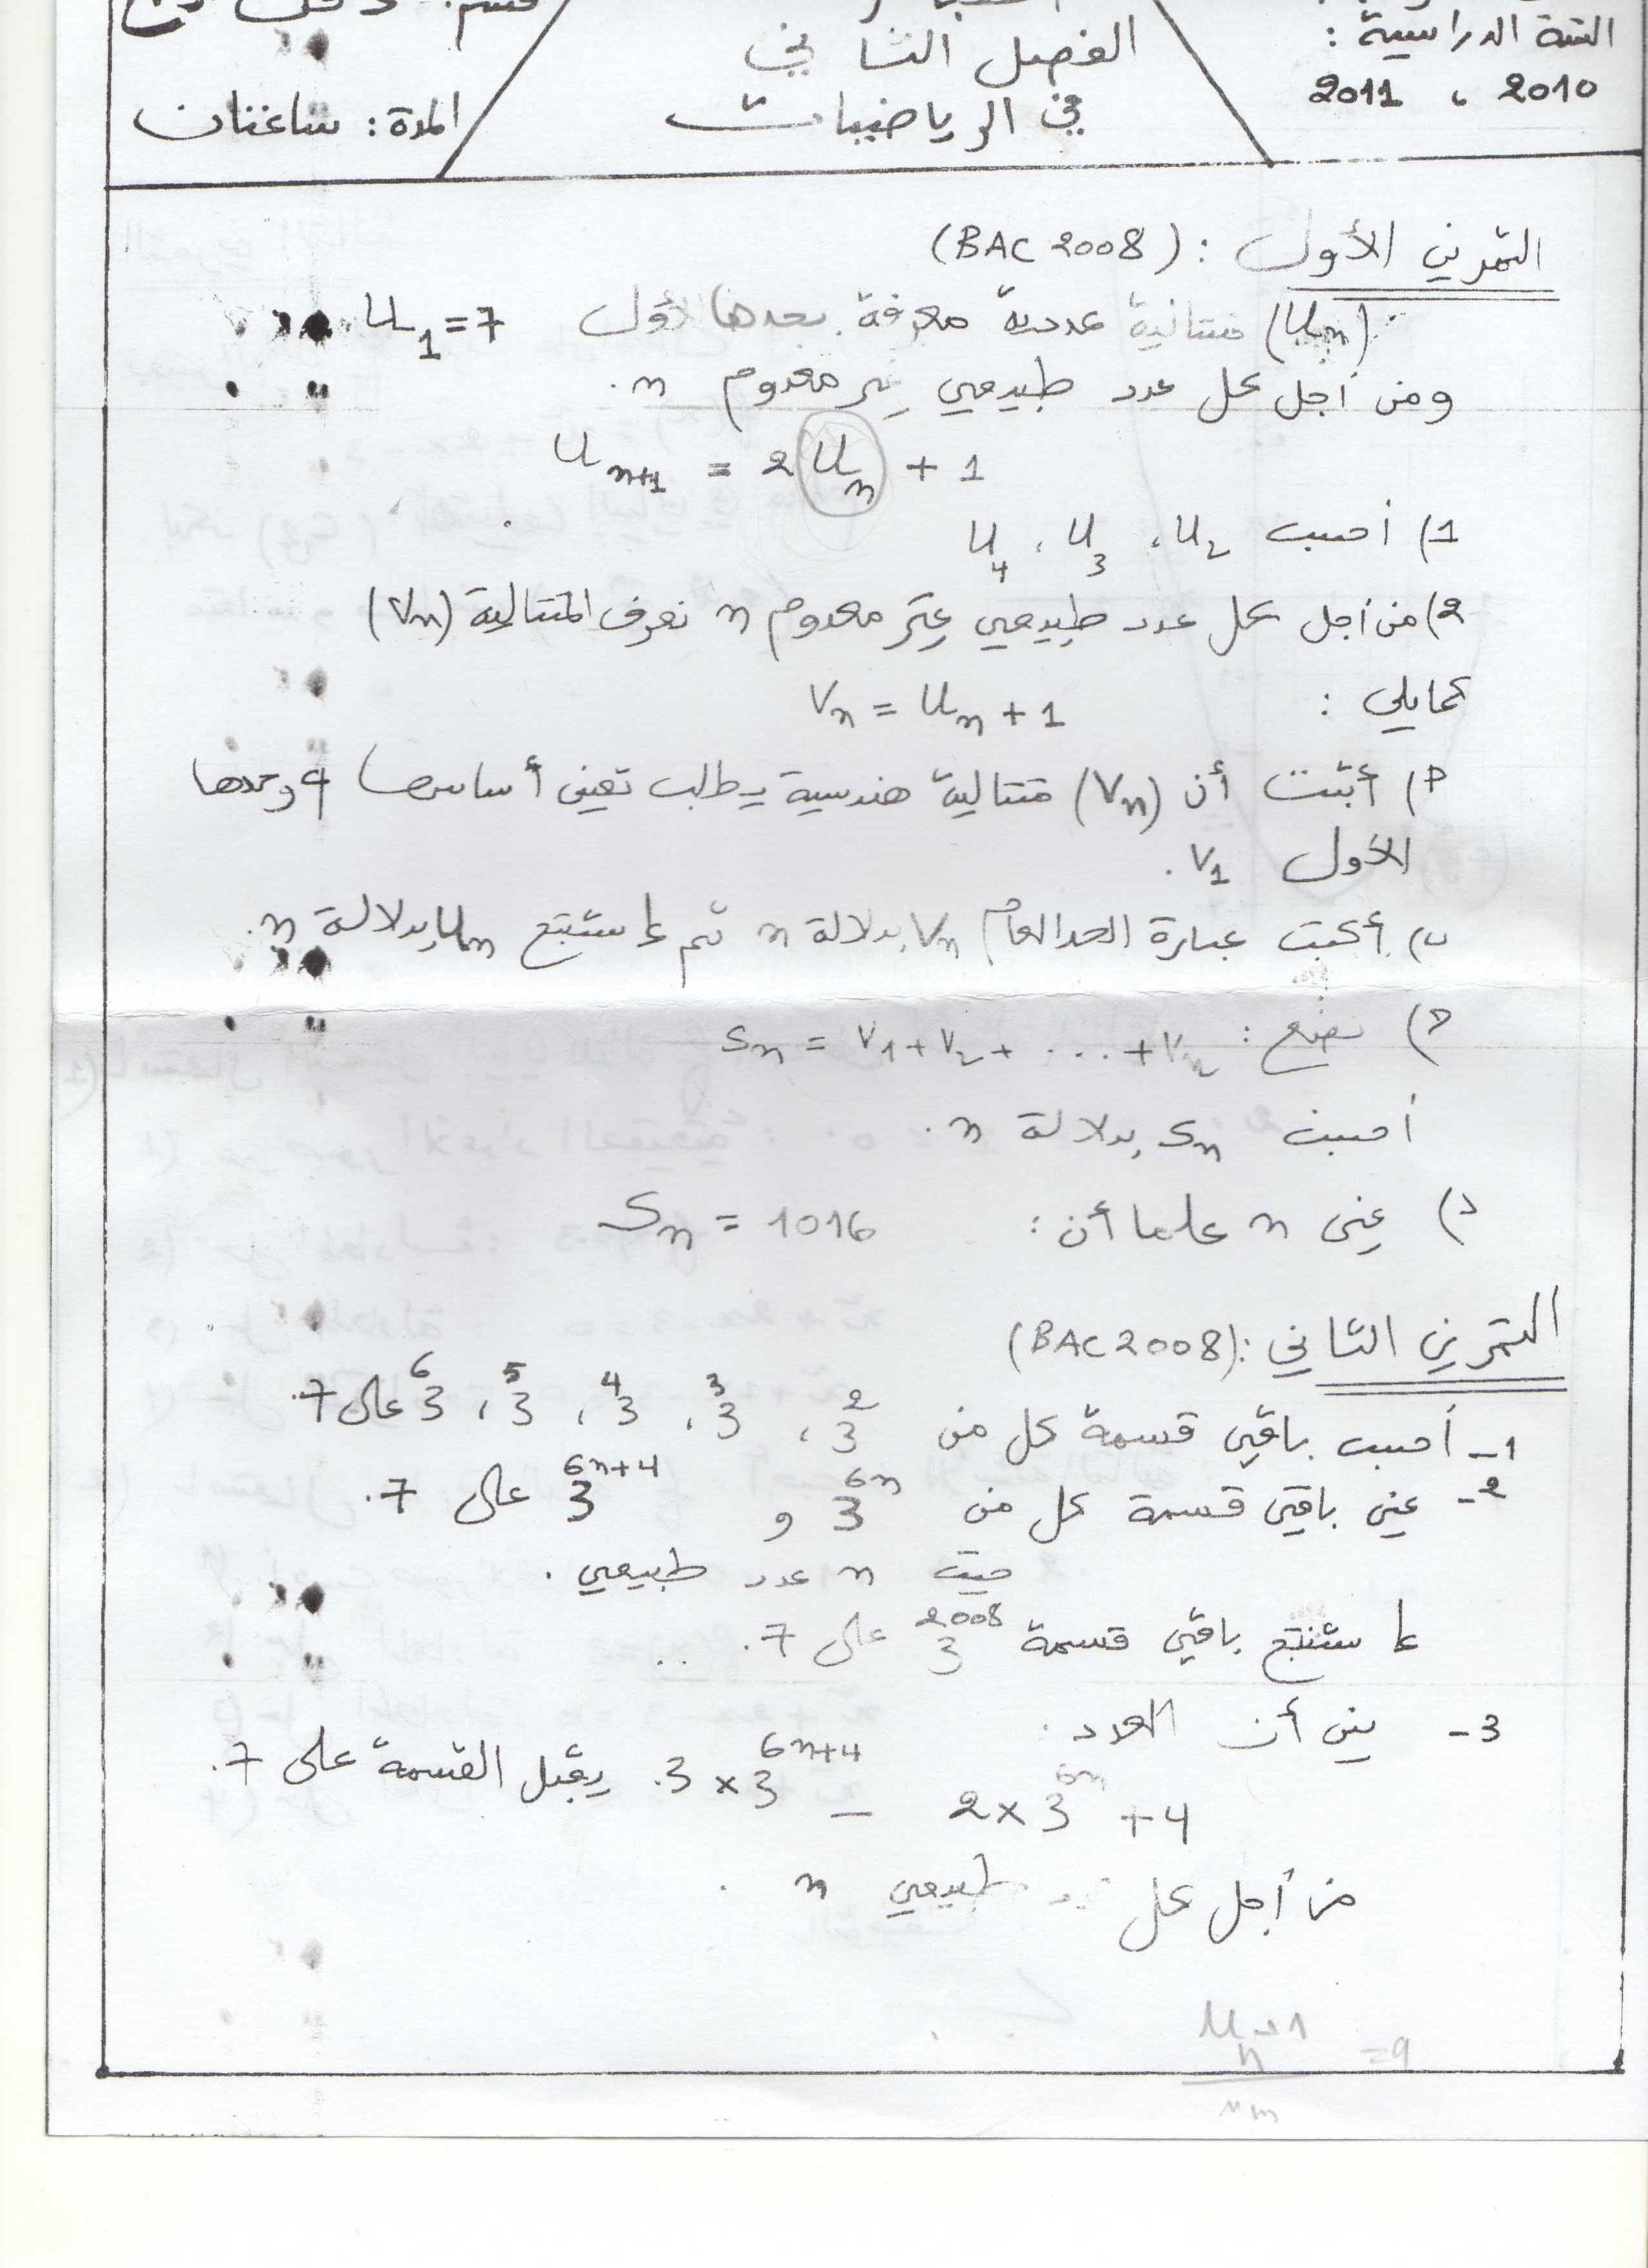 السنة الدراسية :
2010 ، 2011
الفصل الثاني
في الرياضيات
المدة : ساعتان
التمرين الأول : (BAC 2008)
(Un) متتالية عددية معرفة بحدها الأول U1 = 7
ومن أجل كل عدد طبيعي غير معدوم n .
Un+1 = 2Un + 1
1) أحسب U2 ، U3 ، U4
2) من أجل كل عدد طبيعي غير معدوم n نعرف المتتالية (Vn)
كمايلي : Vn = Un + 1
أ) أثبت أن (Vn) متتالية هندسية يطلب تعيين أساسها q وحدها
الأول V1 .
ب) أكتب عبارة الحد العام Vn بدلالة n ثم إستنتج Un بدلالة n .
ج) نضع : Sn = V1 + V2 + ... + Vn
أحسب Sn بدلالة n .
د) عين n علما أن : Sn = 1016
التمرين الثاني : (BAC 2008)
1- أحسب باقي قسمة كل من 3² ، 3³ ، 3⁴ ، 3⁵ ، 3⁶ على 7 .
2- عين باقي قسمة كل من 3^6n و 3^6n+4 على 7 .
حيث n عدد طبيعي .
إستنتج باقي قسمة 3^2008 على 7 .
3- بين أن العدد
2 × 3^6n + 4 – 3 × 3^6n+4 يقبل القسمة على 7 .
من أجل كل عدد طبيعي n .